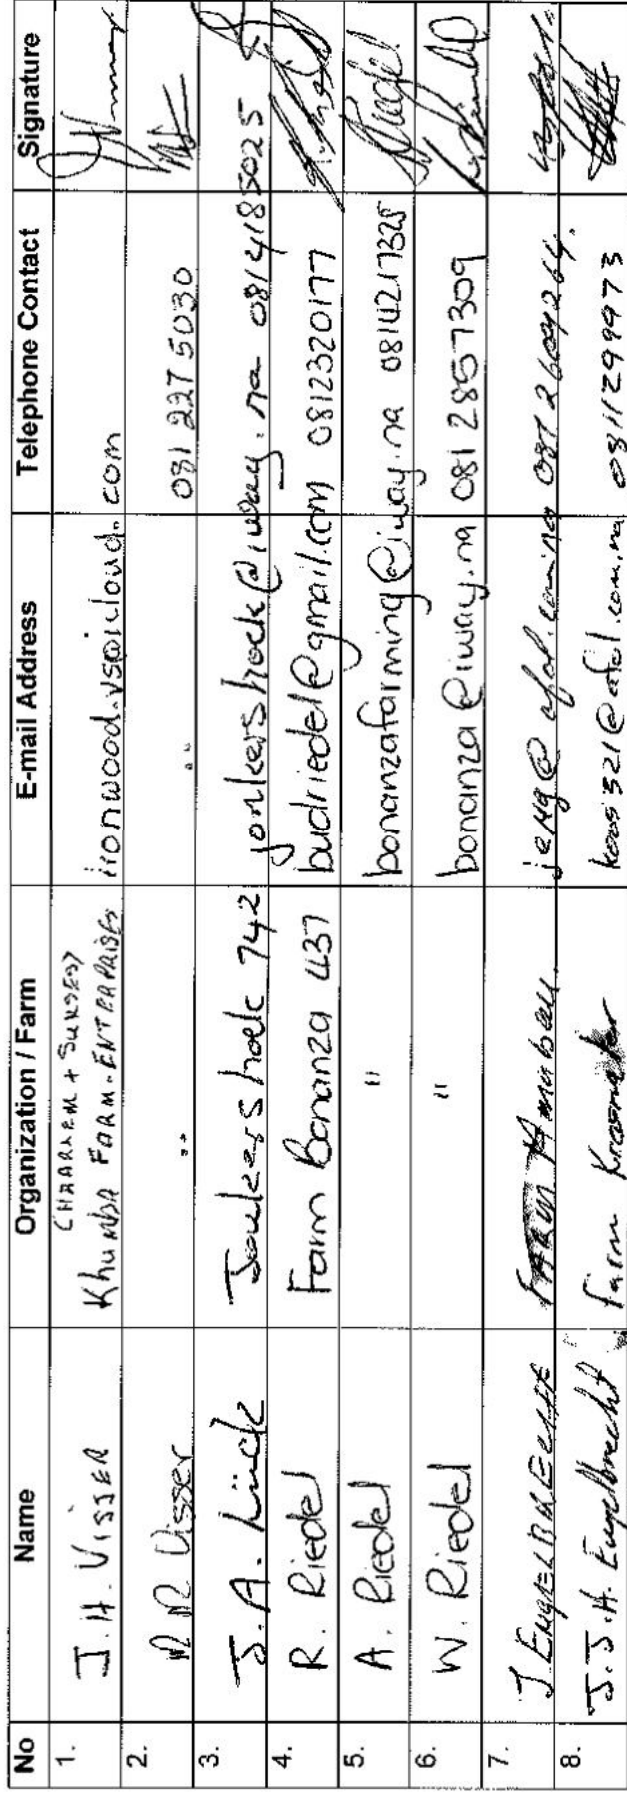 No Name Organization / Farm E-mail Address Telephone Contact Signature
1. J.H. VISSER CHAARLEM + SUKSES) Khumba FARM-ENTERPRISES ironwood.vs@icloud.com
2. Visser " " 081 227 5030
3. J.A. Lück Jonkershoek 742 jonkershoek@iway.na 0814185025
4. R. Riedel Farm Bonanza 437 budriedel@gmail.com 0812320177
5. A. Riedel " bonanzafarming@iway.na 0814217325
6. W. Riedel " bonanza@iway.na 081 285 7309
7. J ENGELBRECHT FARM
8. J.J.H. Engelbrecht farm 0811299973